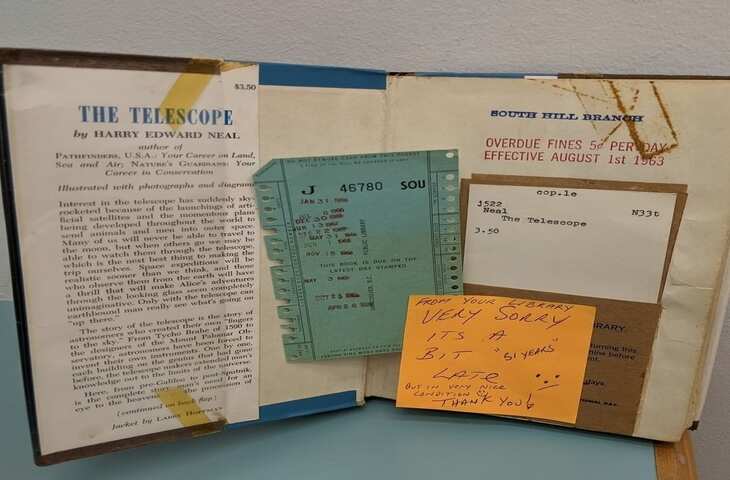 $3.50
THE TELESCOPE
by HARRY EDWARD NEAL
author of
PATHFINDERS, U.S.A.: Your Career on Land,
Sea and Air; NATURE'S GUARDIANS: Your
Career in Conservation
Illustrated with photographs and diagrams
Interest in the telescope has suddenly sky-
rocketed because of the launchings of arti-
ficial satellites and the momentous plans
being developed throughout the world to
send animals and men into outer space.
Many of us will never be able to travel to
the moon, but when others go we may be
able to watch them through the telescope,
which is the next best thing to making the
trip ourselves. Space expeditions will be
realistic sooner than we think, and those
who observe them from the earth will have
a thrill that will make Alice's adventures
through the looking glass seem completely
unimaginative. Only with the telescope can
earthbound man really see what's going on
"up there."
The story of the telescope is the story of
astronomers who created their own "fingers
to the sky." From Tycho Brahe of 1580 to
the designers of the Mount Palomar Ob-
servatory, astronomers have been forced to
invent their own instruments. One by one,
each building on the genius that had gone
before, the telescope makers extended man's
knowledge out to the limits of the universe.
Here, from pre-Galileo to post-Sputnik,
is the complete story of the need for an
eye to the heavens, the possession of
(continued on back flap)
Jacket by LARRY HOFFMAN
DO NOT REMOVE CARD FROM THIS POCKET
J 46780 SOU
JAN 31
DEC 30
JUN 13
MAY 31
NOV 15
THIS BOOK IS DUE ON THE
LATEST DATE STAMPED
MAY 3
SOUTH HILL BRANCH
OVERDUE FINES 5¢ PER DAY
EFFECTIVE AUGUST 1st 1963
cop.1e
j522
Neal N33t
The Telescope
3.50
FROM YOUR LIBRARY
VERY SORRY
ITS A
BIT "51 YEARS"
LATE
BUT IN VERY NICE
CONDITION
THANK YOU!